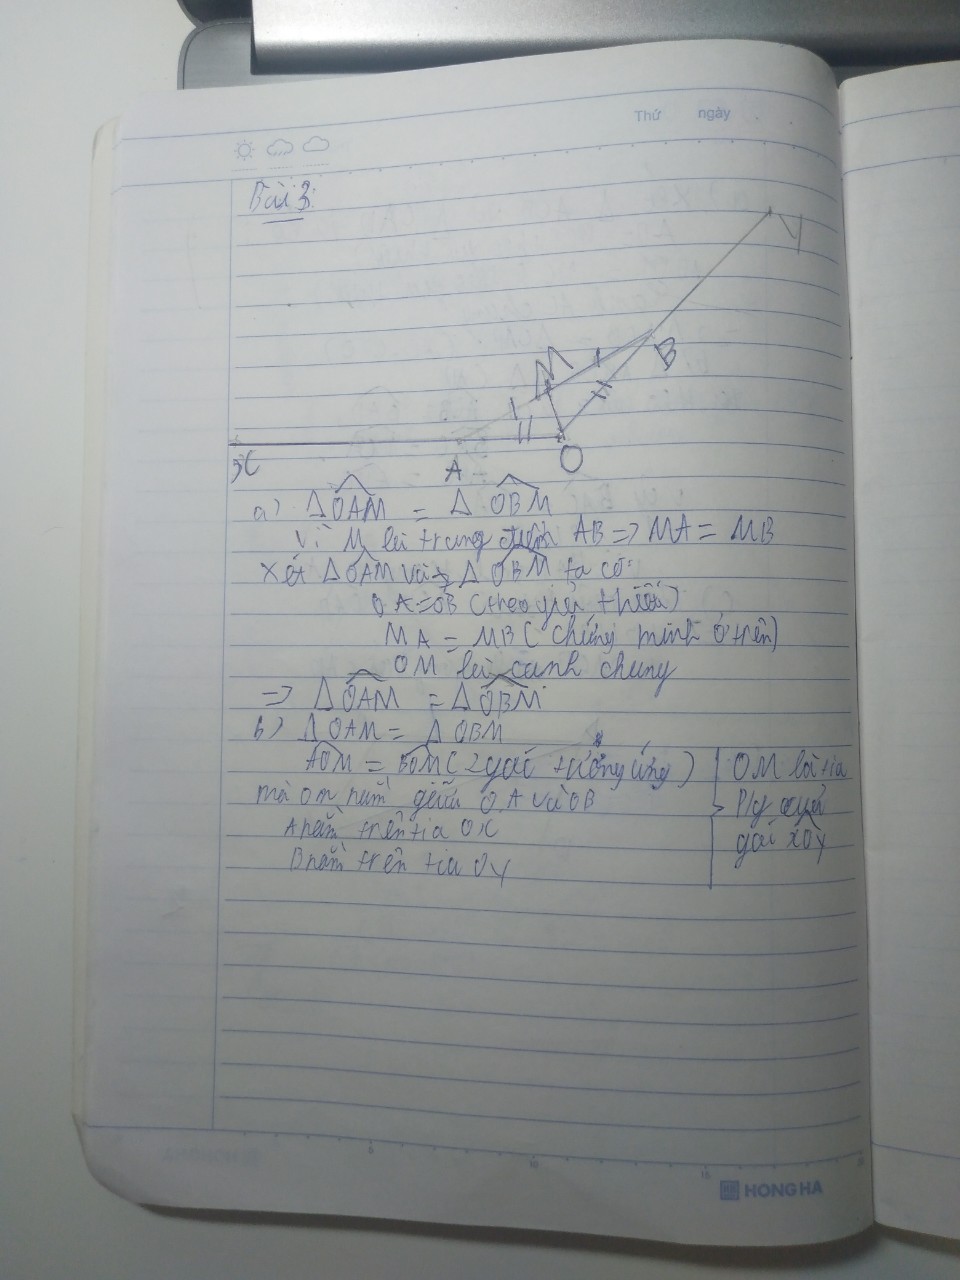 Thứ ngày
Bài 3:
y
M
B
x
A
O
a) Δ OAM = Δ OBM
Vì M là trung điểm AB => MA = MB
Xét Δ OAM và Δ OBM ta có:
OA = OB (theo giả thiết)
MA = MB (chứng minh ở trên)
OM là cạnh chung
=> Δ OAM = Δ OBM
b) Δ OAM = Δ OBM
AOM = BOM (2 góc tương ứng)
mà OM nằm giữa OA và OB
A nằm trên tia Ox
B nằm trên tia Oy
OM là tia
p/g của
góc xOy
HONG HA